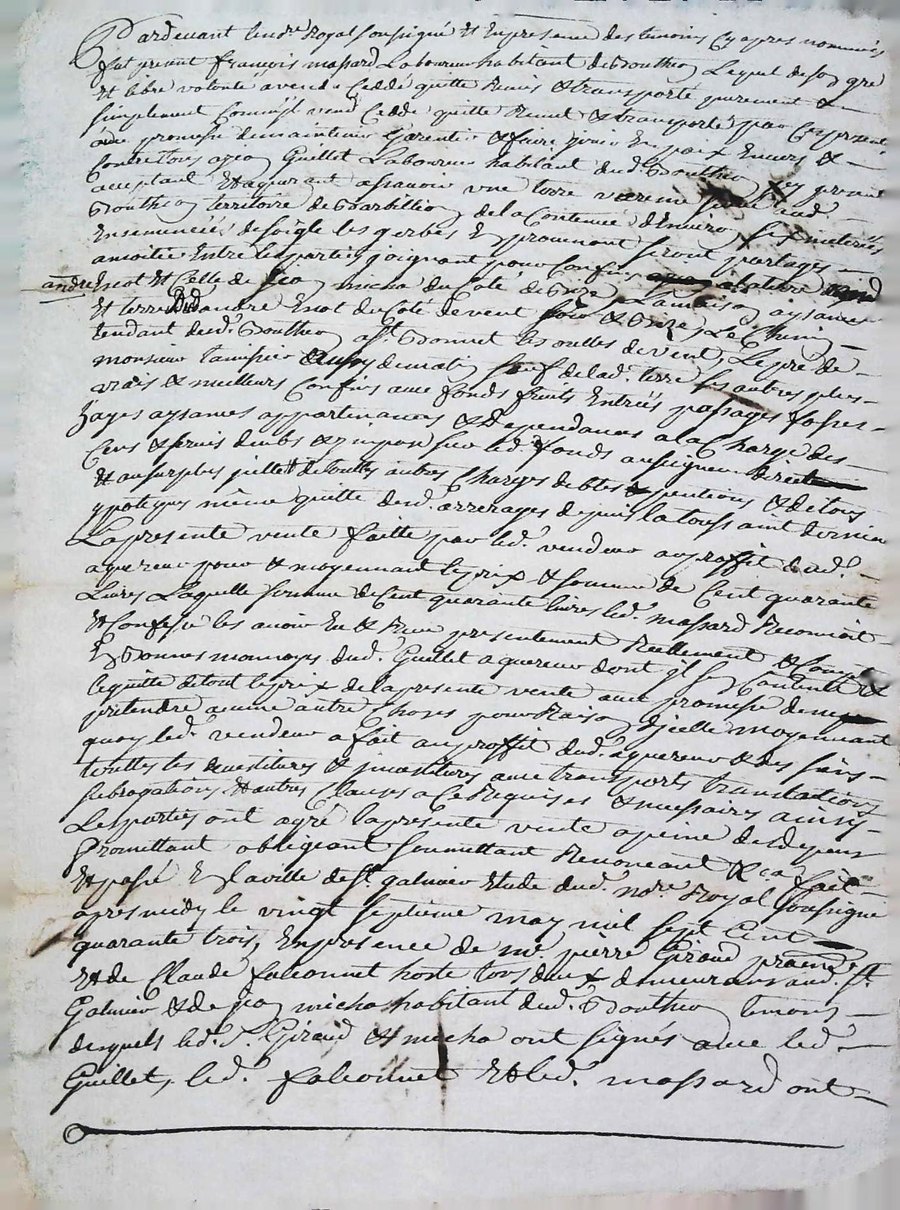 Pardevant le no.re Royal soussigné Et En presence des temoins Cy apres nommés
fut present françois massard Laboureur habitant de Bouthéon Lequel de son gré
Et libre volonté a vendu Ceddé quitté Remis & transporté purement &
simplement Comme il vend Cedde quitte Remet & transporte par Ces presentes
avec promesse de maintenir Garentir & faire jouir En paix Envers &
Contre tous a jean Guillet Laboureur habitant dud. Bouthéon Icy present
acceptant Et aquerant assavoir une terre varenne aud.
Bouthéon territoire de Barbillion de la Contenue d'Environ six meterées
Ensemencée de soigle les gerbes En provenant seront partagés
a moitié Entre les parties joignant pour Confins
andré Enot Et Celle de jean micha du Coté de Bize La maison aysances
Et terre Dud andré Enot du Coté de vent soir & Bize, Le Chemin
tendant dud. Bouthéon a st. Bonnet les oulles de vent, Le pré de
monsieur tamisier de matin sauf de lad. terre ses autres plus
vrais & meilleurs Confins avec fonds fruits Entrées passages fosses
hayes aysances appartenances & Dependances a la Charge des
Cens & servis deubs & imposés sur led. fonds au seigneur direct
Et au surplus quitte de touttes autres Charges debtes pentions & de tous
ypoteques même quitte dud. arrerages depuis la toussaint derniere
La presente vente faitte par led. vendeur au proffit dud.
aquereur pour & moyennant le prix & somme de Cent quarante
Livres Laquelle somme de Cent quarante livres led. massard Reconnoit
Et Confesse les avoir Eu & Reçu presentement Reellement &
En Bonnes monnoyes dud. Guillet aquereur dont il s'en Contente &
le quitte de tout le prix de la presente vente avec promesse de ne
pretendre aucune autre Choses pour Raison d'jcelle moyennant
quoy led. vendeur a fait au proffit dud. aquereur & des siens
touttes les devestitures & jnvestitures avec transports translations
subrogations Et autres Clauses a Ce Requises & necessaires ainsy
Les parties ont agré la presente vente a peine de Depens
Promettant obligeant soumettant Renonceant &ca fait
Et passé En la ville de st. galmier Etude dud. nore. Royal soussigné
apres midy le vingt septieme may mil sept Cent
quarante trois, En presence de me. pierre Giraud
Et de Claude falconnet hoste tous deux demeurans aud. st.
Galmier & de jean micha habitant dud. Bouthéon temoins
desquels led. s. Giraud & micha ont signés avec led.
Guillet, led. falconnet Et led. massard ont